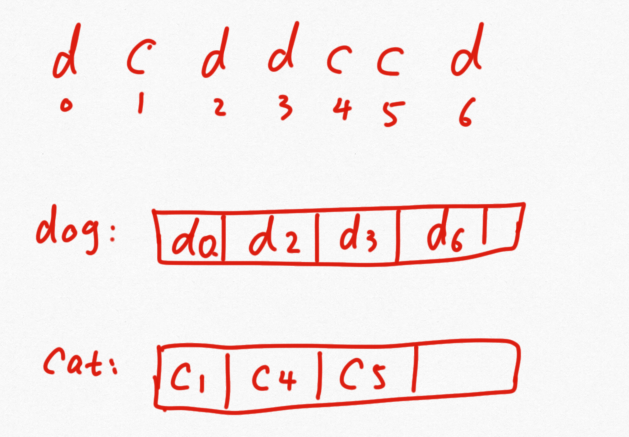 d c d d c c d
0 1 2 3 4 5 6
dog: d0 d2 d3 d6
Cat: C1 C4 C5